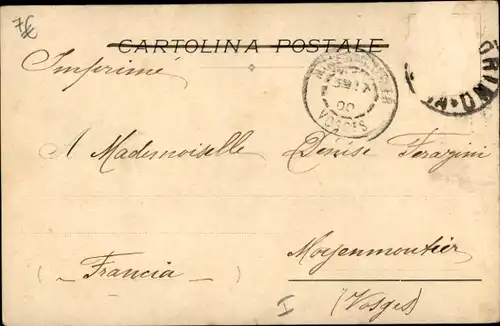 7€
CARTOLINA POSTALE
Imprimé
VOSGES
A Mademoiselle Denise Ferazini
Moyenmoutier
(Francia)
(Vosges)
I